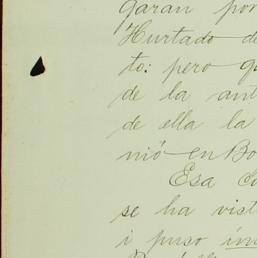 garan por
Hurtado de
to: pero qu
de la ant
de ella la
nió en Bo
Esa Co
se ha vist
i puso in